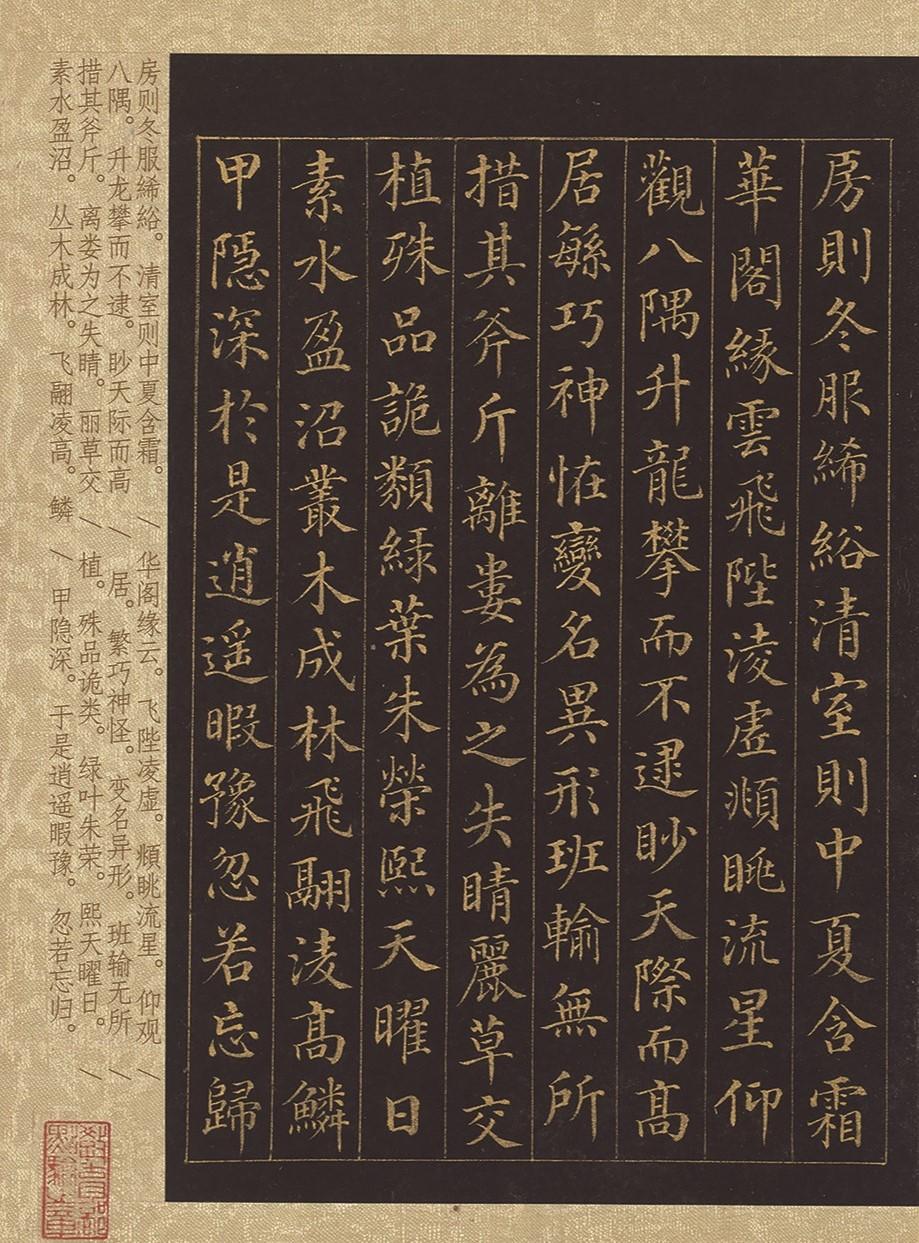 房則冬服絺綌清室則中夏含霜
華閣緣雲飛陛淩虛頫眺流星仰
觀八隅升龍攀而不逮眇天際而高
居緐巧神恠變名異形班輸無所
措其斧斤離婁為之失睛麗草交
植殊品詭類綠葉朱榮熙天曜日
素水盈沼叢木成林飛翮淩高鱗
甲隱深於是逍遥暇豫忽若忘歸
房则冬服絺綌。清室则中夏含霜。\华阁缘云。飞陛凌虚。頫眺流星。仰观\
八隅。升龙攀而不逮。眇天际而高\居。繁巧神怪。变名异形。班输无所\
措其斧斤。离娄为之失睛。丽草交\植。殊品诡类。绿叶朱荣。熙天曜日。\
素水盈沼。丛木成林。飞翮凌高。鳞\甲隐深。于是逍遥暇豫。忽若忘归。